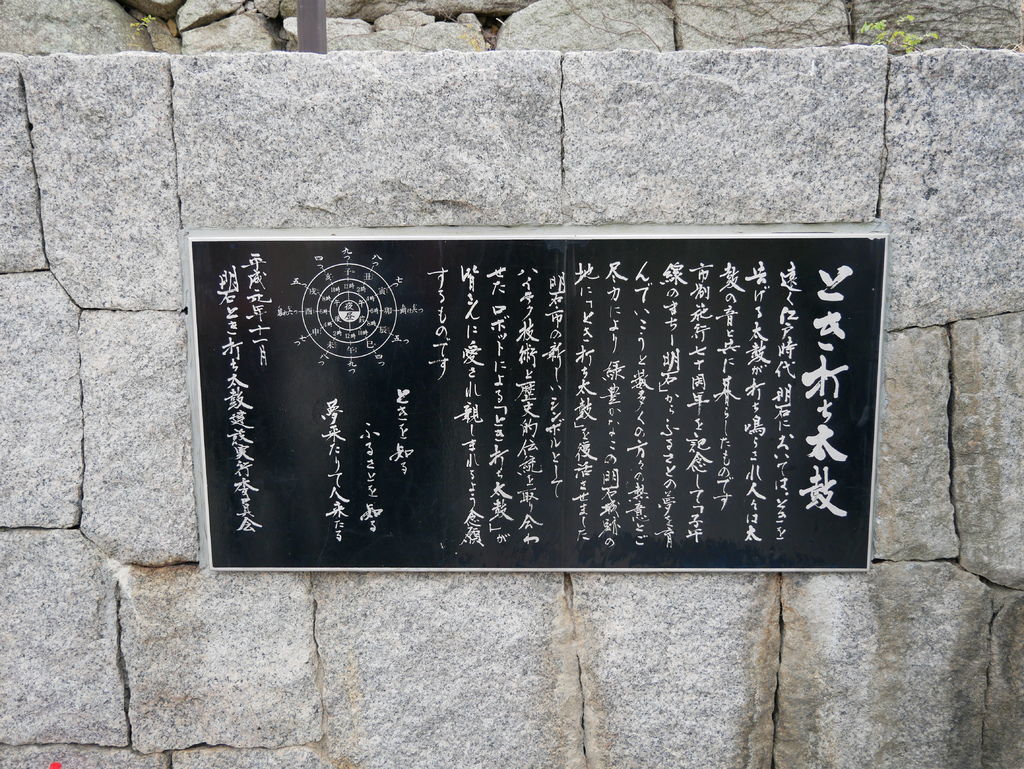 とき打ち太鼓
遠く江戸時代 明石においては、ときを
告げる太鼓が打ち鳴らされ人々は太
鼓の音と共に暮らしたものです
市制施行七十周年を記念して「子午
線のまち－明石」からふるさとの夢を育
んでいこうと数多くの方々の熱意とご
尽力により 緑豊かなこの明石城跡の
地に「とき打ち太鼓」を復活させました
明石市の新しいシンボルとして
ハイテク技術と歴史的伝統を取り合わ
せた ロボットによる「とき打ち太鼓」が
皆さんに愛され親しまれるよう念願
するものです
ときを知る
ふるさとを知る
夢来たりて人来たる
九つ
八つ
七つ
明けむつ
五つ
四つ
九つ
八つ
七つ
暮れむつ
五
四
子
丑
寅
卯
辰
巳
午
未
申
酉
戌
亥
夜
昼
平成元年十一月
明石とき打ち太鼓建設実行委員会